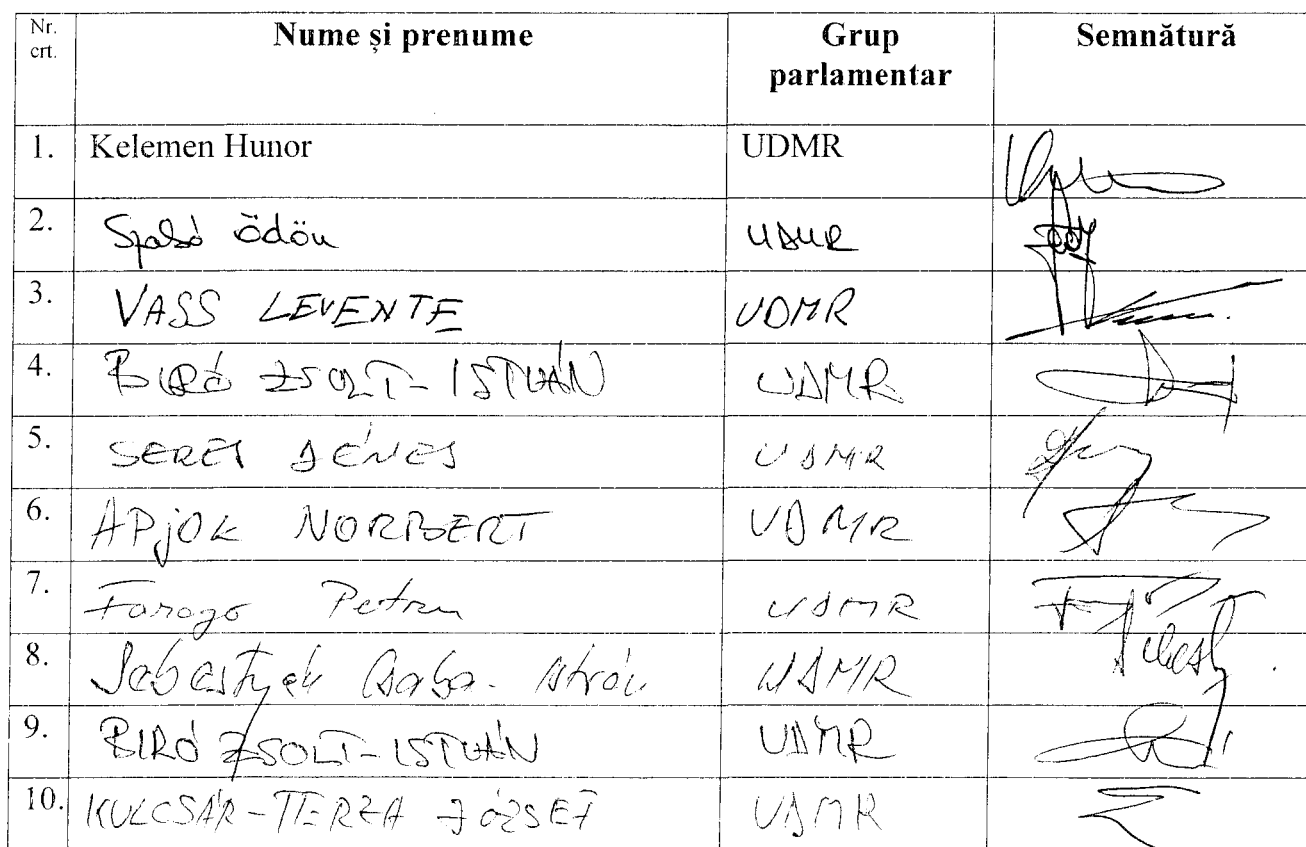 Nr. crt. Nume și prenume Grup parlamentar Semnătură
1. Kelemen Hunor UDMR
2. Szabó Ödön UDMR
3. VASS LEVENTE UDMR
4. BIRÓ ZSOLT-ISTVÁN UDMR
5. SERES DÉNES UDMR
6. APJOK NORBERT UDMR
7. Farago Petru UDMR
8. Sebestyén Csaba-István UDMR
9. BIRÓ ZSOLT-ISTVÁN UDMR
10. KULCSÁR-TERZA JÓZSEF UDMR